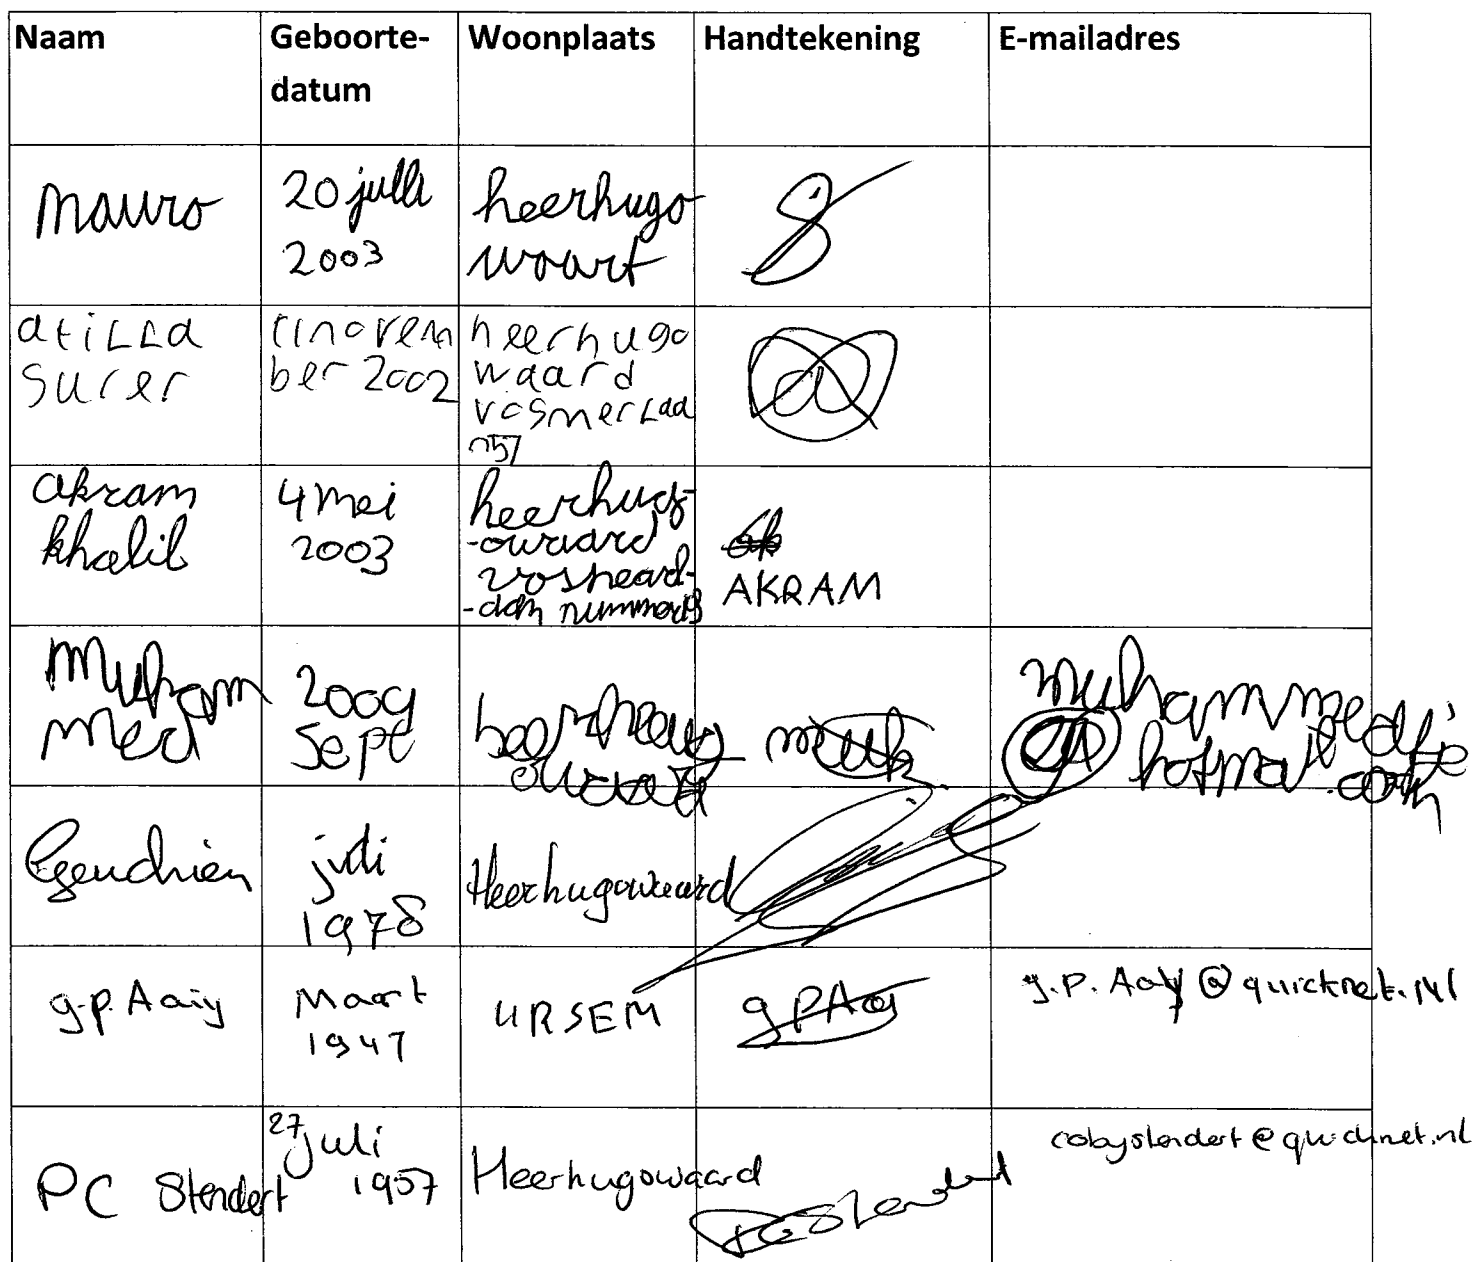 Naam
Geboorte-
datum
Woonplaats
Handtekening
E-mailadres
Mauro
20 julli
2003
heerhugo
waart
atilla
surer
11 novem
ber 2002
heerhugo
waard
vosmerlaa
n57
akram
khalil
4 mei
2003
heerhug-
-owaard
nummer
AKRAM
Muham
med
2009
Sept
muhammedje
@ hotmail.com
juli
1978
Heerhugowaard
g.p. Aaij
Maart
1947
URSEM
g P Aa
g.P. Aaij @ quicknet.Nl
PC Stendert
27 juli
1957
Heerhugowaard
PC Stendert
cobystendert@quicknet.nl